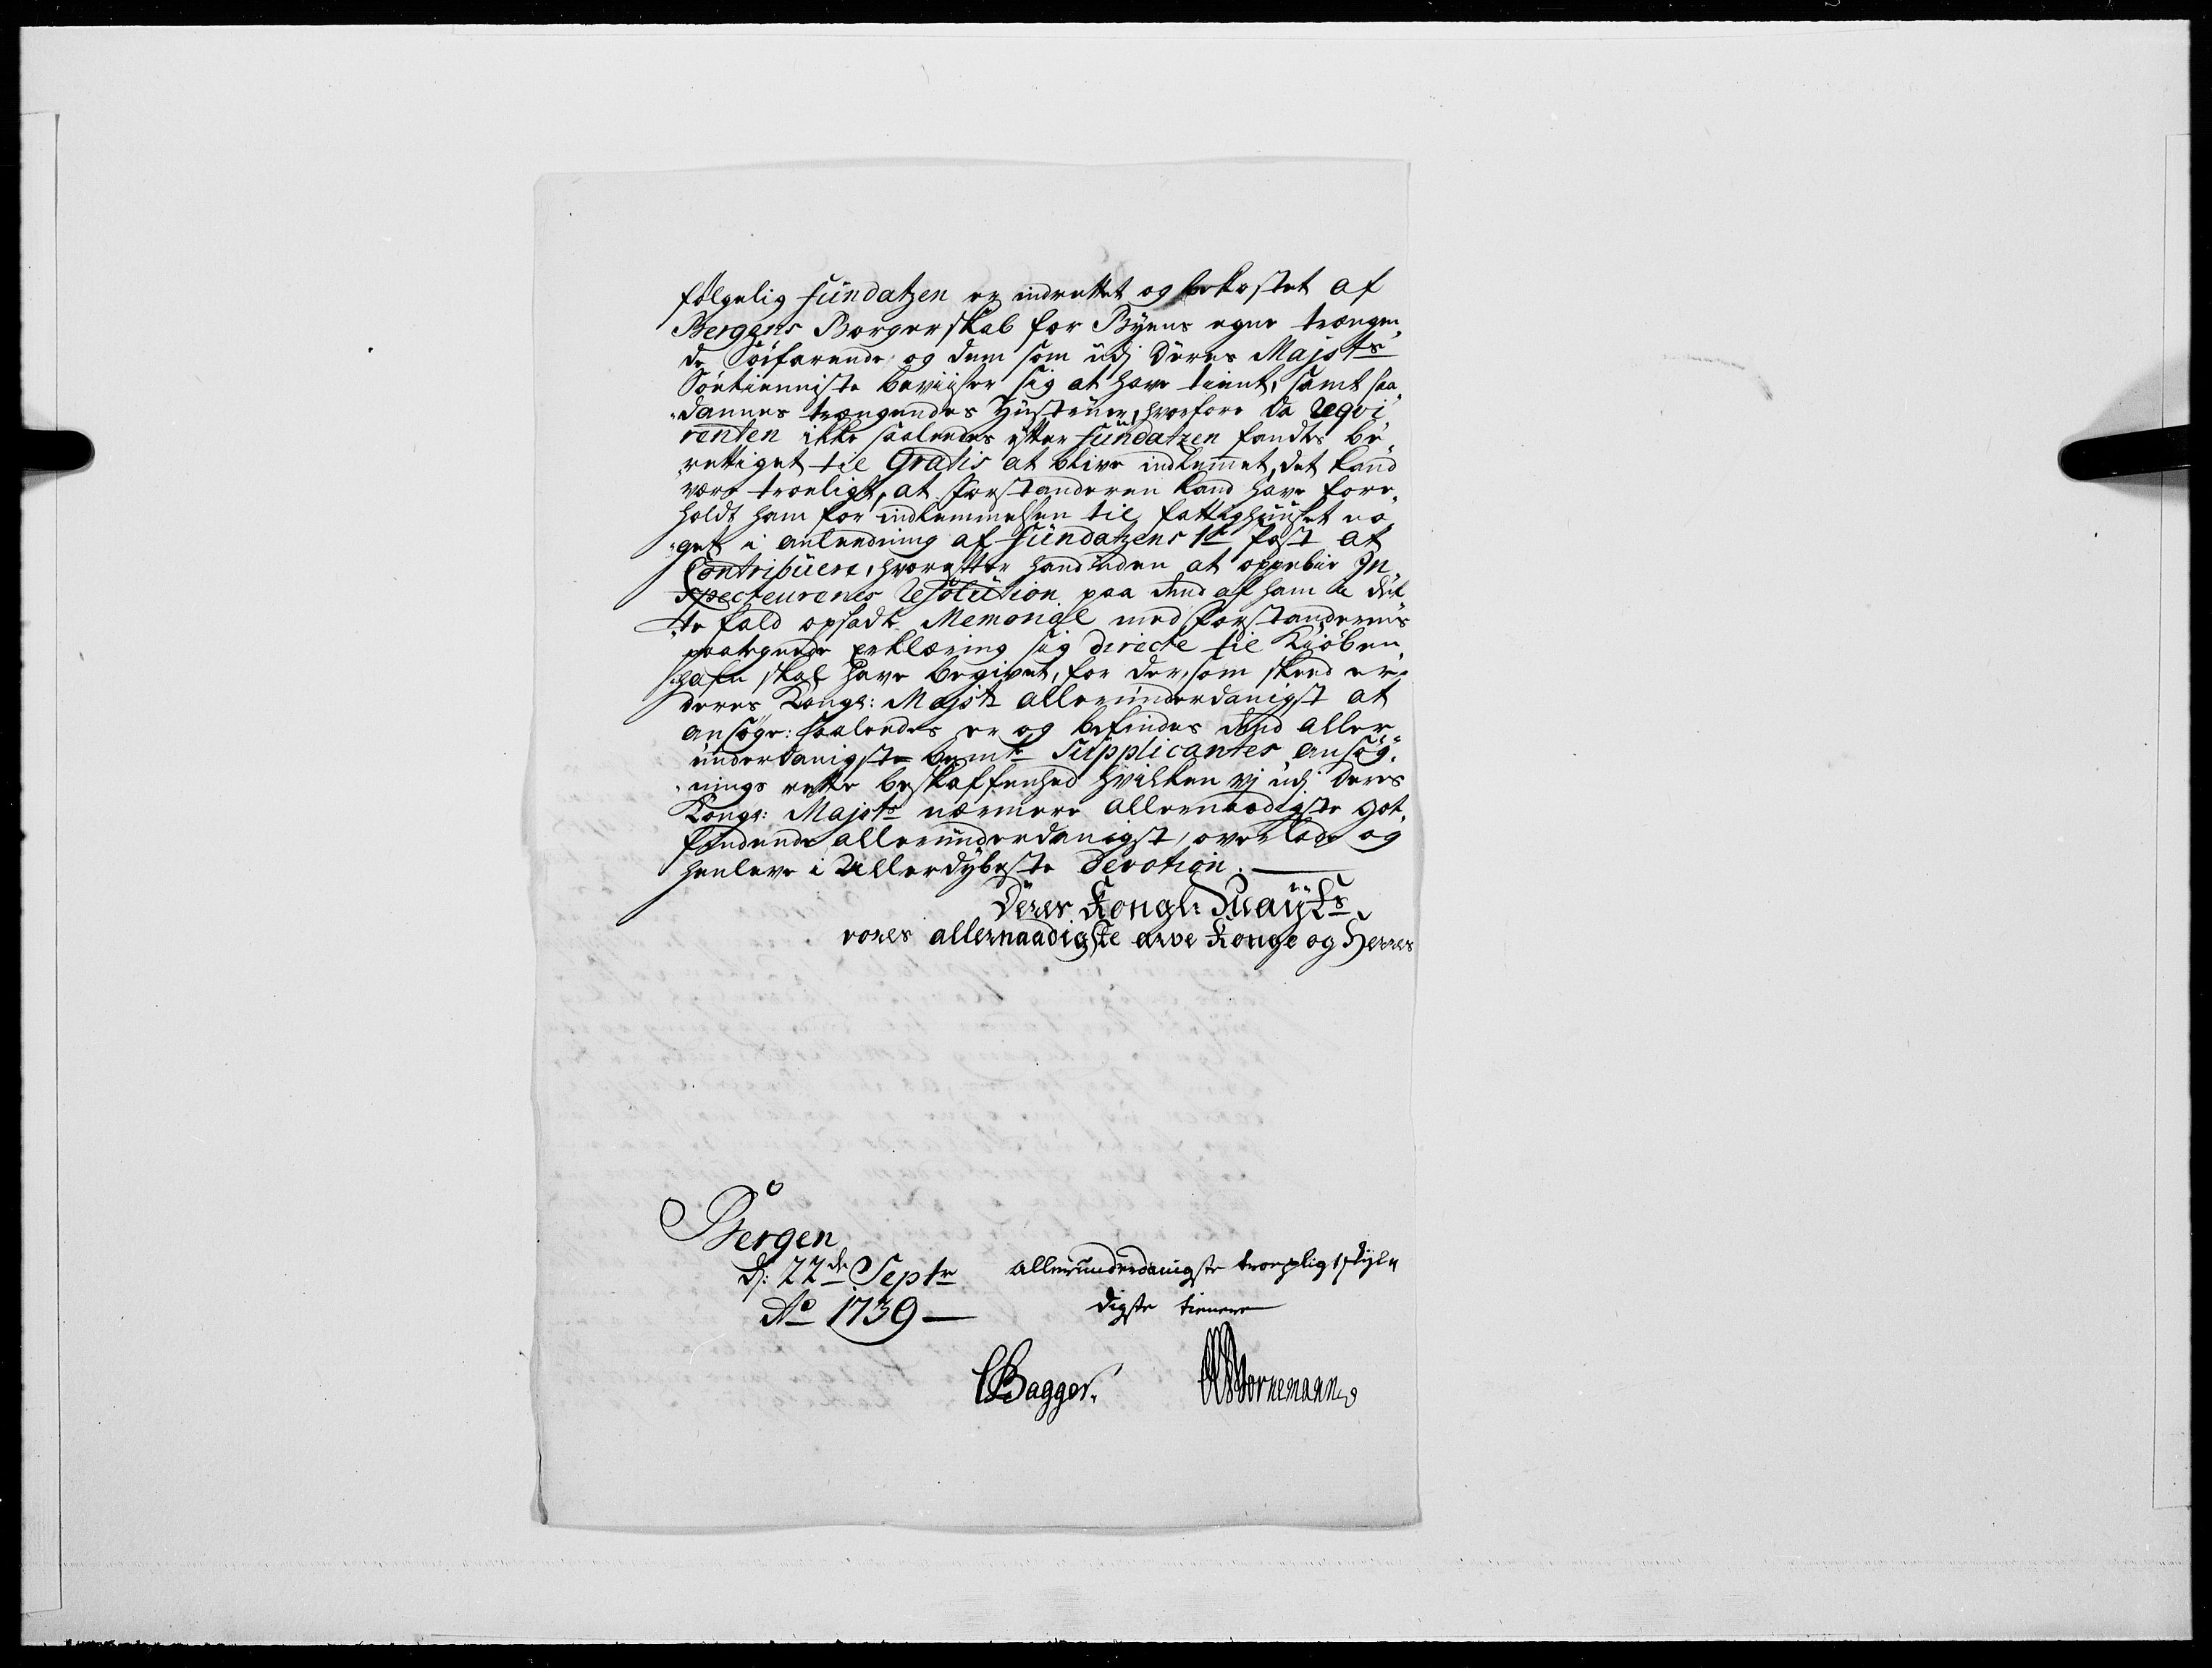 følgelig fundatzen er indrettet og bekostet af
Bergens Borgerskab for Byens egne trængen,
de Søefarende og dem som udj Deres Majsts
Søetienniste beviiser sig at have tient, samt saa
„dannes trængendes Hustruer, hvorfore da Reqvi
renten ikke saaledes efter fundatzen fandtes be„
rettiget til Gratis at blive indlemmet, det kand
være troeligt, at Forstanderen kand have fore„
holdt ham for indlemmelsen til fattighuuset no„
„get i anleedning af fundatzens 1te Post at
Contribuere, hvorefter hand uden at oppebie In„
specteurenes Resolution paa dend af ham i det
„te fald opsadte Memorial med Forstanderens
paategnede erklæring sig directe til Kiøben„
„hafn skal have begivet, for der, som skeed er„
deres Kongl: Majst allerunderdanigst at
ansøge: saaledes er og befindes dend aller„
underdanigste bemte Supplicantes ansøg„
„nings rette beskaffenhed hvilken vj udj Deres
Kongl: Majsts nærmere allernaadigste got„
findende allerunderdanigst overlade og
henleve i Allerdybeste Devotion.
Deres Kongl: Maÿts
vores allernaadigste arve Konge og Herres
Bergen
d: 22de Septr
Ao 1739
allerunderdanigste troepligtskyl„
digste tienere
CBagger.
Bornemann